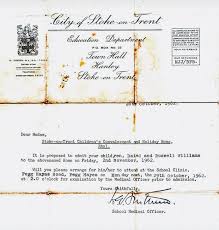 City of Stoke-on-Trent
Education Department
P.O. BOX No
Town Hall
Hanley
Stoke-on-Trent
October, 1962.
Dear Madam,
Stoke-on-Trent Children's Convalescent and Holiday Home,
It is proposed to admit your children, and Russell Williams
to the abovenamed Home on Friday, 2nd November, 1962.
Will you please arrange for him/her to attend at the School Clinic,
Road, Pegg Hayes on Mon day next, the 29th October, 1962.
at 2.0 o'clock for examination by the Medical Officer prior to admission.
Yours faithfully,
School Medical Officer.